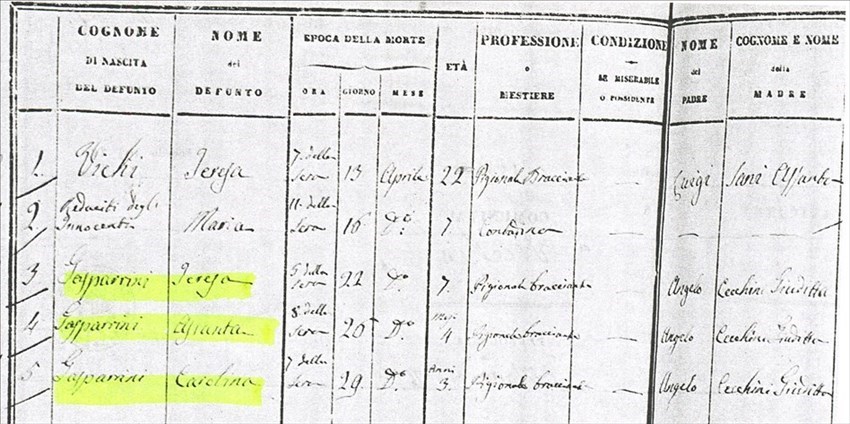 COGNOME
DI NASCITA
DEL DEFUNTO
NOME
del
DEFUNTO
EPOCA DELLA MORTE
ORA
GIORNO
MESE
ETÀ
PROFESSIONE
o
MESTIERE
CONDIZIONE
SE MISERABILE
O POSSIDENTE
NOME
del
PADRE
COGNOME E NOME
della
MADRE
1 Vichi Teresa 7 della Sera 13 Aprile 22 Pigionale Bracciante Luigi Sani Assunta
2 degl' Innocenti Maria 11 della Sera 16 Do. 1. Contadina
3 Gasparrini Teresa 5 della Sera 22 Do. 7. Pigionale bracciante Angelo Cecchini Giuditta
4 Gasparrini Assunta 8 della Sera Do. mesi 4 Pigionale bracciante Angelo Cecchini Giuditta
5 Gasparrini Carolina 7 della Sera 29. Do. Anni 3. Pigionale bracciante Angelo Cecchini Giuditta